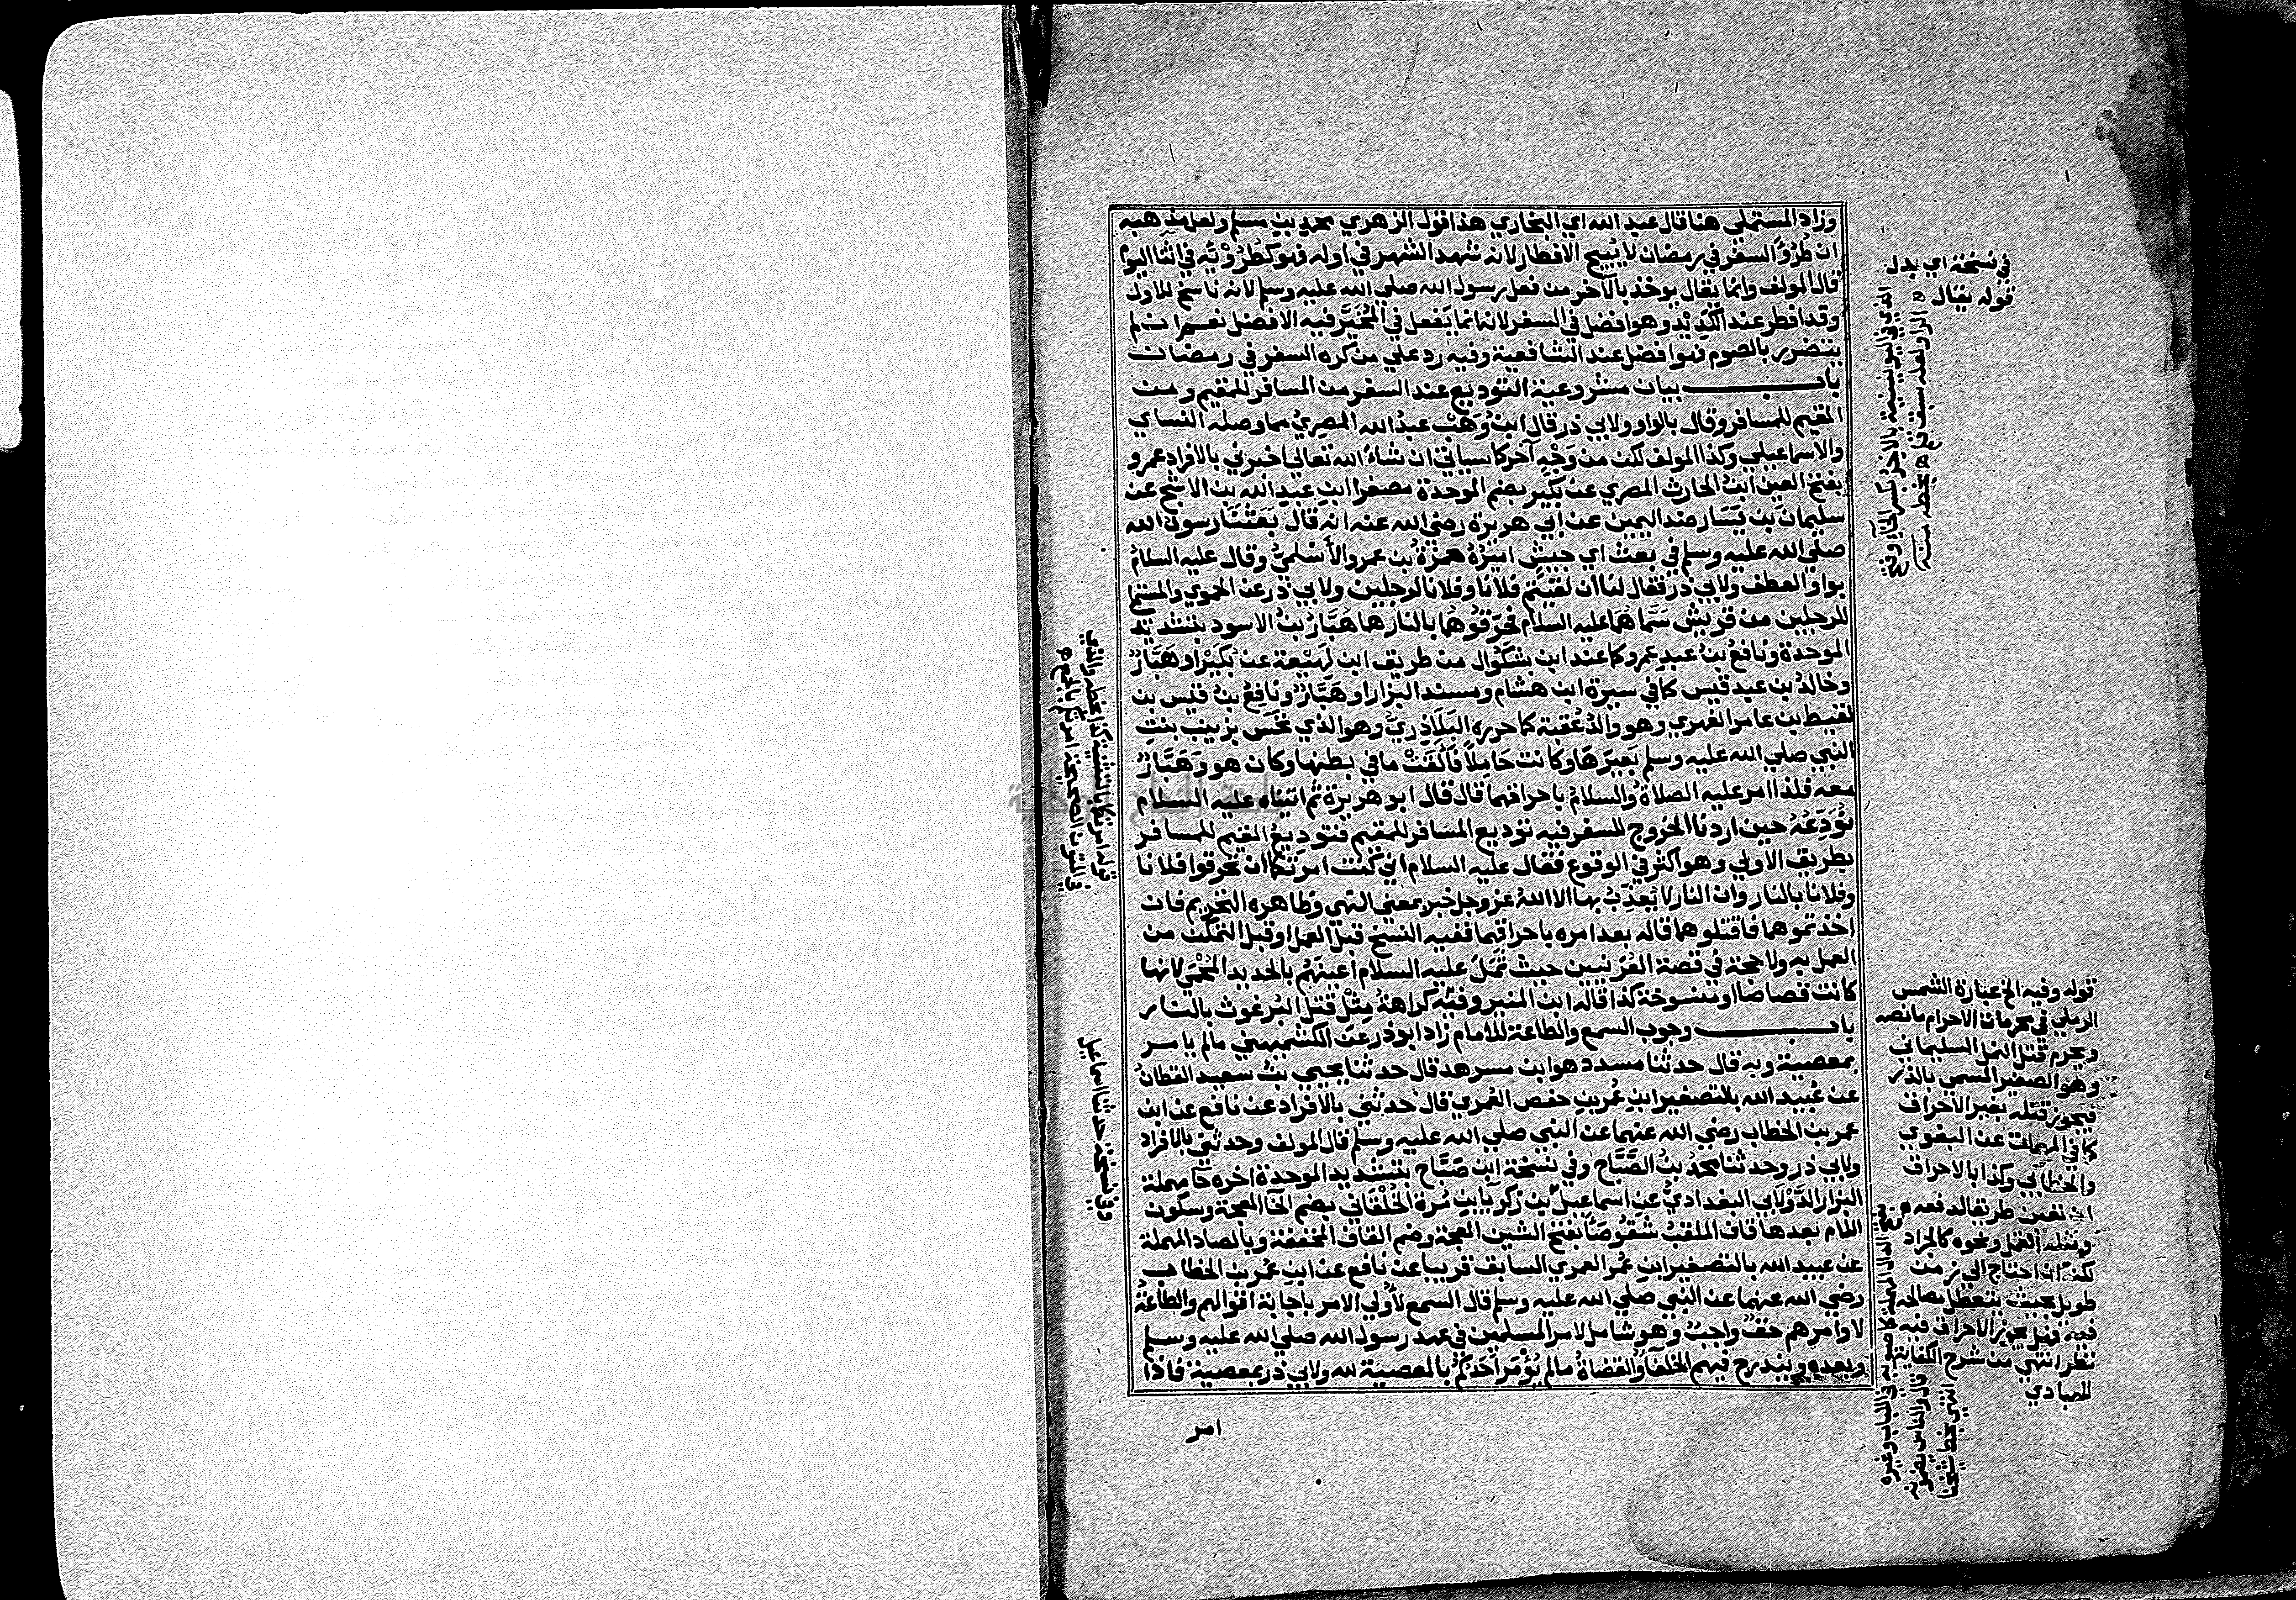 وزاد المستملي هنا قال عبد الله اي البخاري هذا قول الزهري محمد بن مسلم ولعل مذهبه
ان طُرُوَّ السفر في رمضان لا يُبيح الافطار لانه شهد الشهر في اوله فهو كطُرُوِّه في اثنا اليوم
قال المولف وانما يقال يوخذ بالآخر من فعل رسول الله صلي الله عليه وسلم لانه ناسخ للاول
وقد افطر عند الكَدِيْد وهو افضل في السفر لانه انما يَفعل في المُخيَّر فيه الافضل نعم ان لم
يتضرر بالصوم فهو افضل عند الشافعية وفيه رد علي من كره السفر في رمضان
باب بيان مشروعية التوديع عند السفر من المسافر للمقيم ومن
المقيم للمسافر وقال بالواو ولابي ذر قال ابنُ وَهْب عبدُ الله المصريُ مما وصله النساي
والاسماعيلي وكذا المولف لكن من وَجْهٍ آخر كما سياتي ان شاءَ الله تعالي اخبرني بالافراد عمرو
بفتح العين ابنُ الحارث المصري عن بُكَير بضم الموحدة مصغرا ابنِ عبدِ الله بن الاشج عن
سليمانَ بن يَسَار ضد اليمين عن ابي هريرة رضي الله عنه انه قال بَعَثَنَا رسول الله
صلي الله عليه وسلم في بعث اي جيش اميرُهُ حمزةُ بن عمرو الأسْلميُّ وقال عليه السلامُ
بواو العطف ولابي ذر فقال لنا ان لقيتُم فلانا وفلانا لرجلين ولابي ذر عن الحموي والمستملي
للرجلين من قريش سَمَّاهُمَا عليه السلام فحَرِّقوْهُما بالنار هما هَبَّارُ بنُ الاسود بتشديد
الموحدة ونافعُ بنُ عبدِ عمرو كما عند ابن بشكُوَال من طريق ابن لَهِيْعة عن بُكَيْر او هَبَّارٌ
وخالدُ بن عبد قيس كما في سيرة ابن هشام ومسند البزار او هَبَّارٌ ونافعُ بنُ قيس بن
لقيط بن عامر الفهري وهو والدُ عُقبة كما حرره البَلَاذِريُّ وهو الذي نخَسَ بزينب بنتِ
النبي صلي الله عليه وسلم بَعيرَهَا وكانت حَامِلاً فَأَلقَتْ ما في بطنها وكان هو وهَبَّارٌ
معه فلذا امر عليه الصلاةُ والسلامُ باحراقهما قال قال ابو هريرة ثم اتيناه عليه السلام
نُوَدِّعُهُ حين اردنا الخروج للسفر فيه توديع المسافر للمقيم فتوديعُ المقيم للمسافر
بطريق الاولي وهو اكثر في الوقوع فقال عليه السلام اني كنت امرتكم ان تحرقوا فلانا
وفلانا بالنار وان النار لا يُعذِّبُ بها الا اللهُ عز وجل خبر بمعني النهي وظاهره التحريم فان
اخذتموهما فاقتلوهما قاله بعد امره باحراقهما ففيه النسخ قبل العمل او قبل التمكن من
العمل به ولا حجة في قصة العُرَنيين حيث سَمَلَ عليه السلام اعينَهُم بالحديد المُحْمَي لانها
كانت قصاصا او منسوخة كذا قاله ابن المنير وفيه كراهةُ مِثل قتل البُرغوث بالنار
باب وجوب السمع والطاعة للامام زاد ابو ذر عن الكشميهني مالم يامر
بمعصية وبه قال حدثنا مسدد هو ابن مسرهد قال حدثنا يحيي بنُ سعيد القطانُ
عن عُبيد الله بالتصغير ابنِ عُمر بنِ حفص العُمَري قال حدثني بالافراد عن نافع عن ابن
عمر بن الخطاب رضي الله عنهما عن النبي صلي الله عليه وسلم قال المولف وحدثني بالافراد
ولابي ذر وحدثنا محمدُ بنُ الصَّبَّاح وفي نسخة ابن صَبَّاح بتشديد الموحدة اخره حا مهملة
البزار الدَّوْلَابي البغداديُّ عن اسماعيلَ بن زكريا بنِ مُرة الخُلْقَاني بضم الخا المعجمة وسكون
اللام بعدها قاف الملقبُ شقُوصَا بفتح الشين المعجمة وضم القاف المخففة وبالصاد المهملة
عن عبيد الله بالتصغير ابنِ عُمر العمري السابق قريبا عن نافع عن ابنِ عُمر بن الخطاب
رضي الله عنهما عن النبي صلي الله عليه وسلم قال السمع لأولي الامر باجابة اقوالهم والطاعةُ
لاوامرهم حقٌ واجبٌ وهو شامل لامر المسلمين في عهد رسول الله صلي الله عليه وسلم
وبعده ويندرج فيهم الخلفآُ والقضاةُ مالم يُؤمَر احدُكُم بالمعصية لله ولابي ذر بمعصية فاذا
امر
في نسخة اي بدل
قوله يقال
قوله وفيه الخ عبارة الشمس
الرملي في محرمات الاحرام ما نصه
ويحرم قتل النمل السليماني
وهو الصغير المسمي بالذر
فيجوز قتله بغير الاحراق
كما في المهمات عن البغوي
والخطابي وكذا بالاحراق
ان تعين طريقا لدفعه
وتقله القمل ونحوه كالجراد
لكن ان احتاج الي زمن
طويل بحيث يتعطل مصالحه
فيه فهل يجوز الاحراق فيه
نظر انتهي من شرح الكفاية
للعبادي
وفي نسخة حدثنا اسماعيل